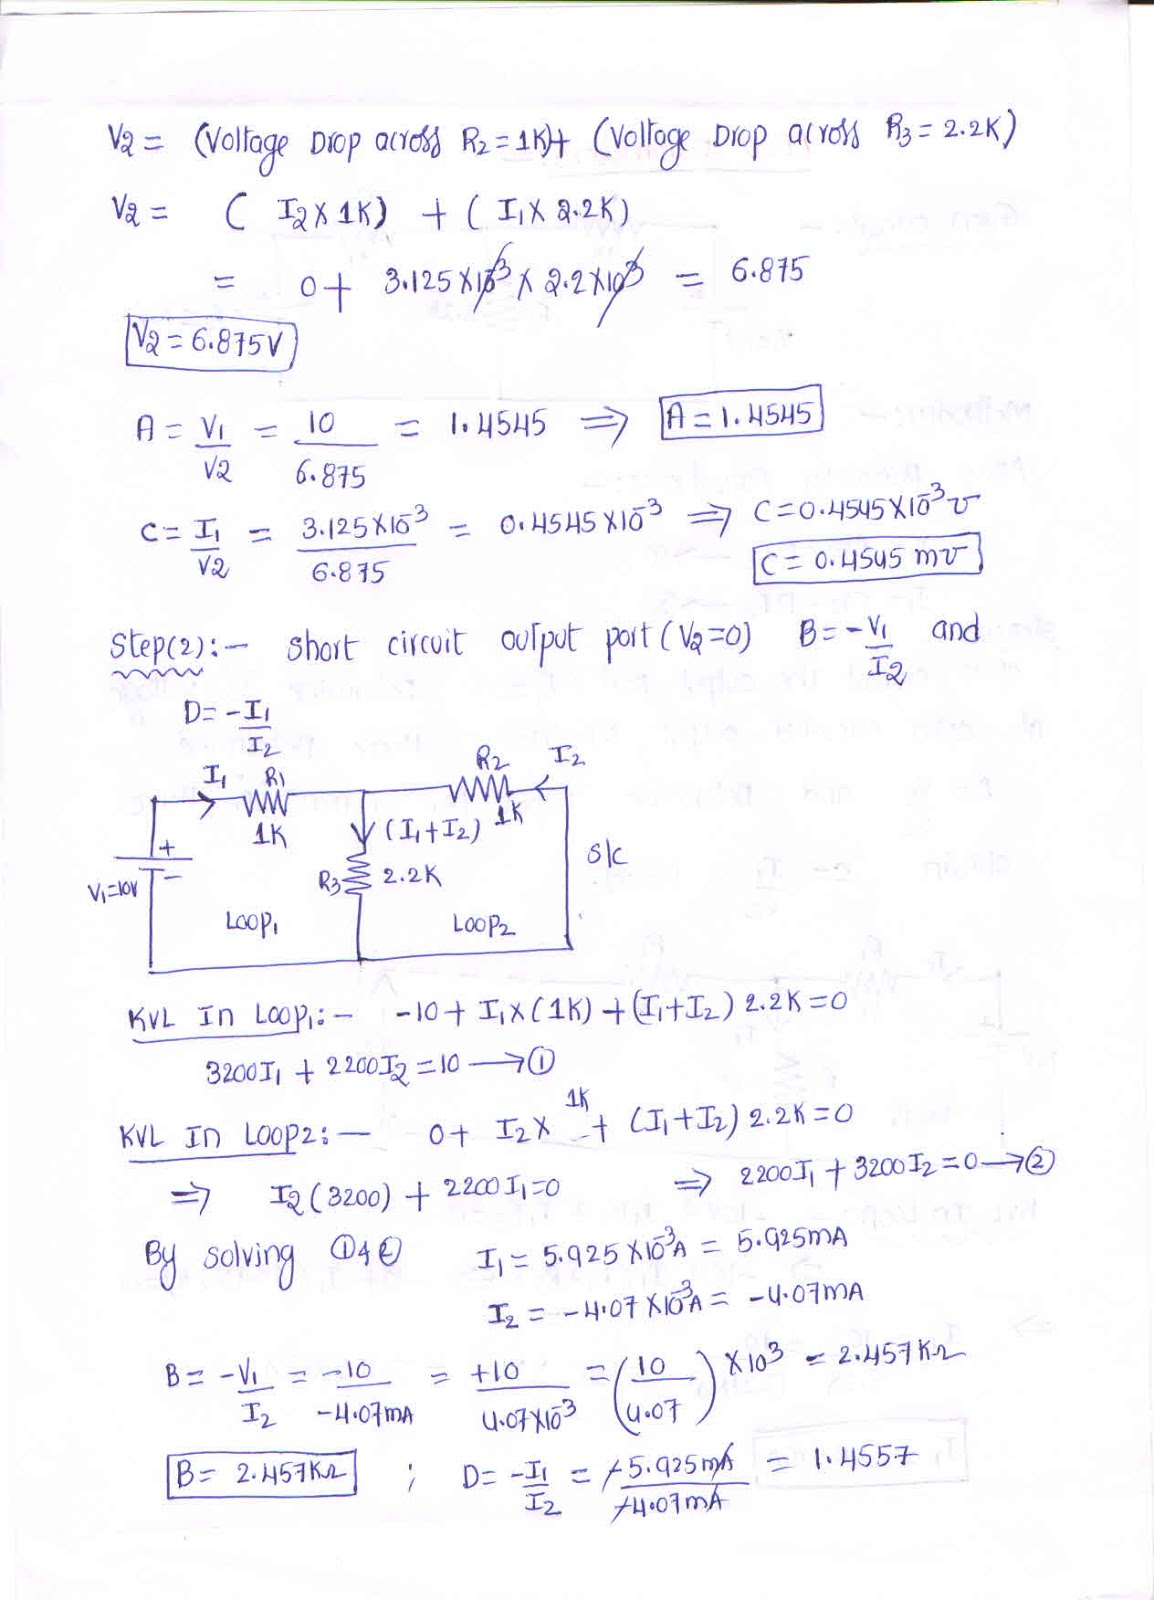 V2 = (Voltage Drop across R2 = 1K)+ (Voltage Drop across R3 = 2.2K)
V2 = ( I2 X 1K) + ( I1 X 2.2K)
= 0 + 3.125 X 10^-3 X 2.2 X 10^3 = 6.875
V2 = 6.875V
A = V1/V2 = 10/6.875 = 1.4545 ⇒ A = 1.4545
C = I1/V2 = 3.125 X 10^-3/6.875 = 0.4545 X 10^-3 ⇒ C = 0.4545 X 10^-3 ℧
C = 0.4545 m℧
Step(2):- Short circuit output port (V2=0) B = -V1/I2 and
D = -I1/I2
I1 R1 R2 I2
1K 1K
+ (I1+I2)
V1=10V - R3 2.2K S/C
LOOP1 LOOP2
KVL In Loop1:- -10 + I1 X (1K) + (I1+I2) 2.2K = 0
3200I1 + 2200I2 = 10 → ①
KVL In LOOP2:- 0 + I2 X 1K + (I1+I2) 2.2K = 0
⇒ I2 (3200) + 2200 I1 = 0 ⇒ 2200I1 + 3200I2 = 0 → ②
By solving ① & ② I1 = 5.925 X 10^-3 A = 5.925mA
I2 = -4.07 X 10^-3 A = -4.07mA
B = -V1/I2 = -10/-4.07mA = +10/4.07X10^-3 = (10/4.07) X 10^3 = 2.457KΩ
B = 2.457KΩ ; D = -I1/I2 = -5.925mA/-4.07mA = 1.4557